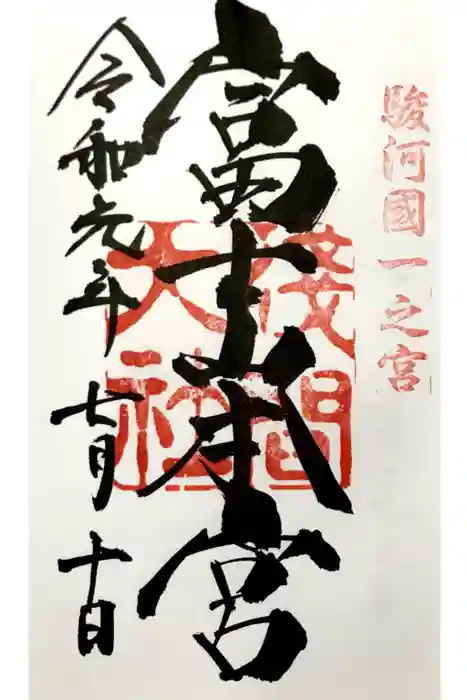 駿河國一之宮
富士山本宮
淺間大社
令和元年七月十日